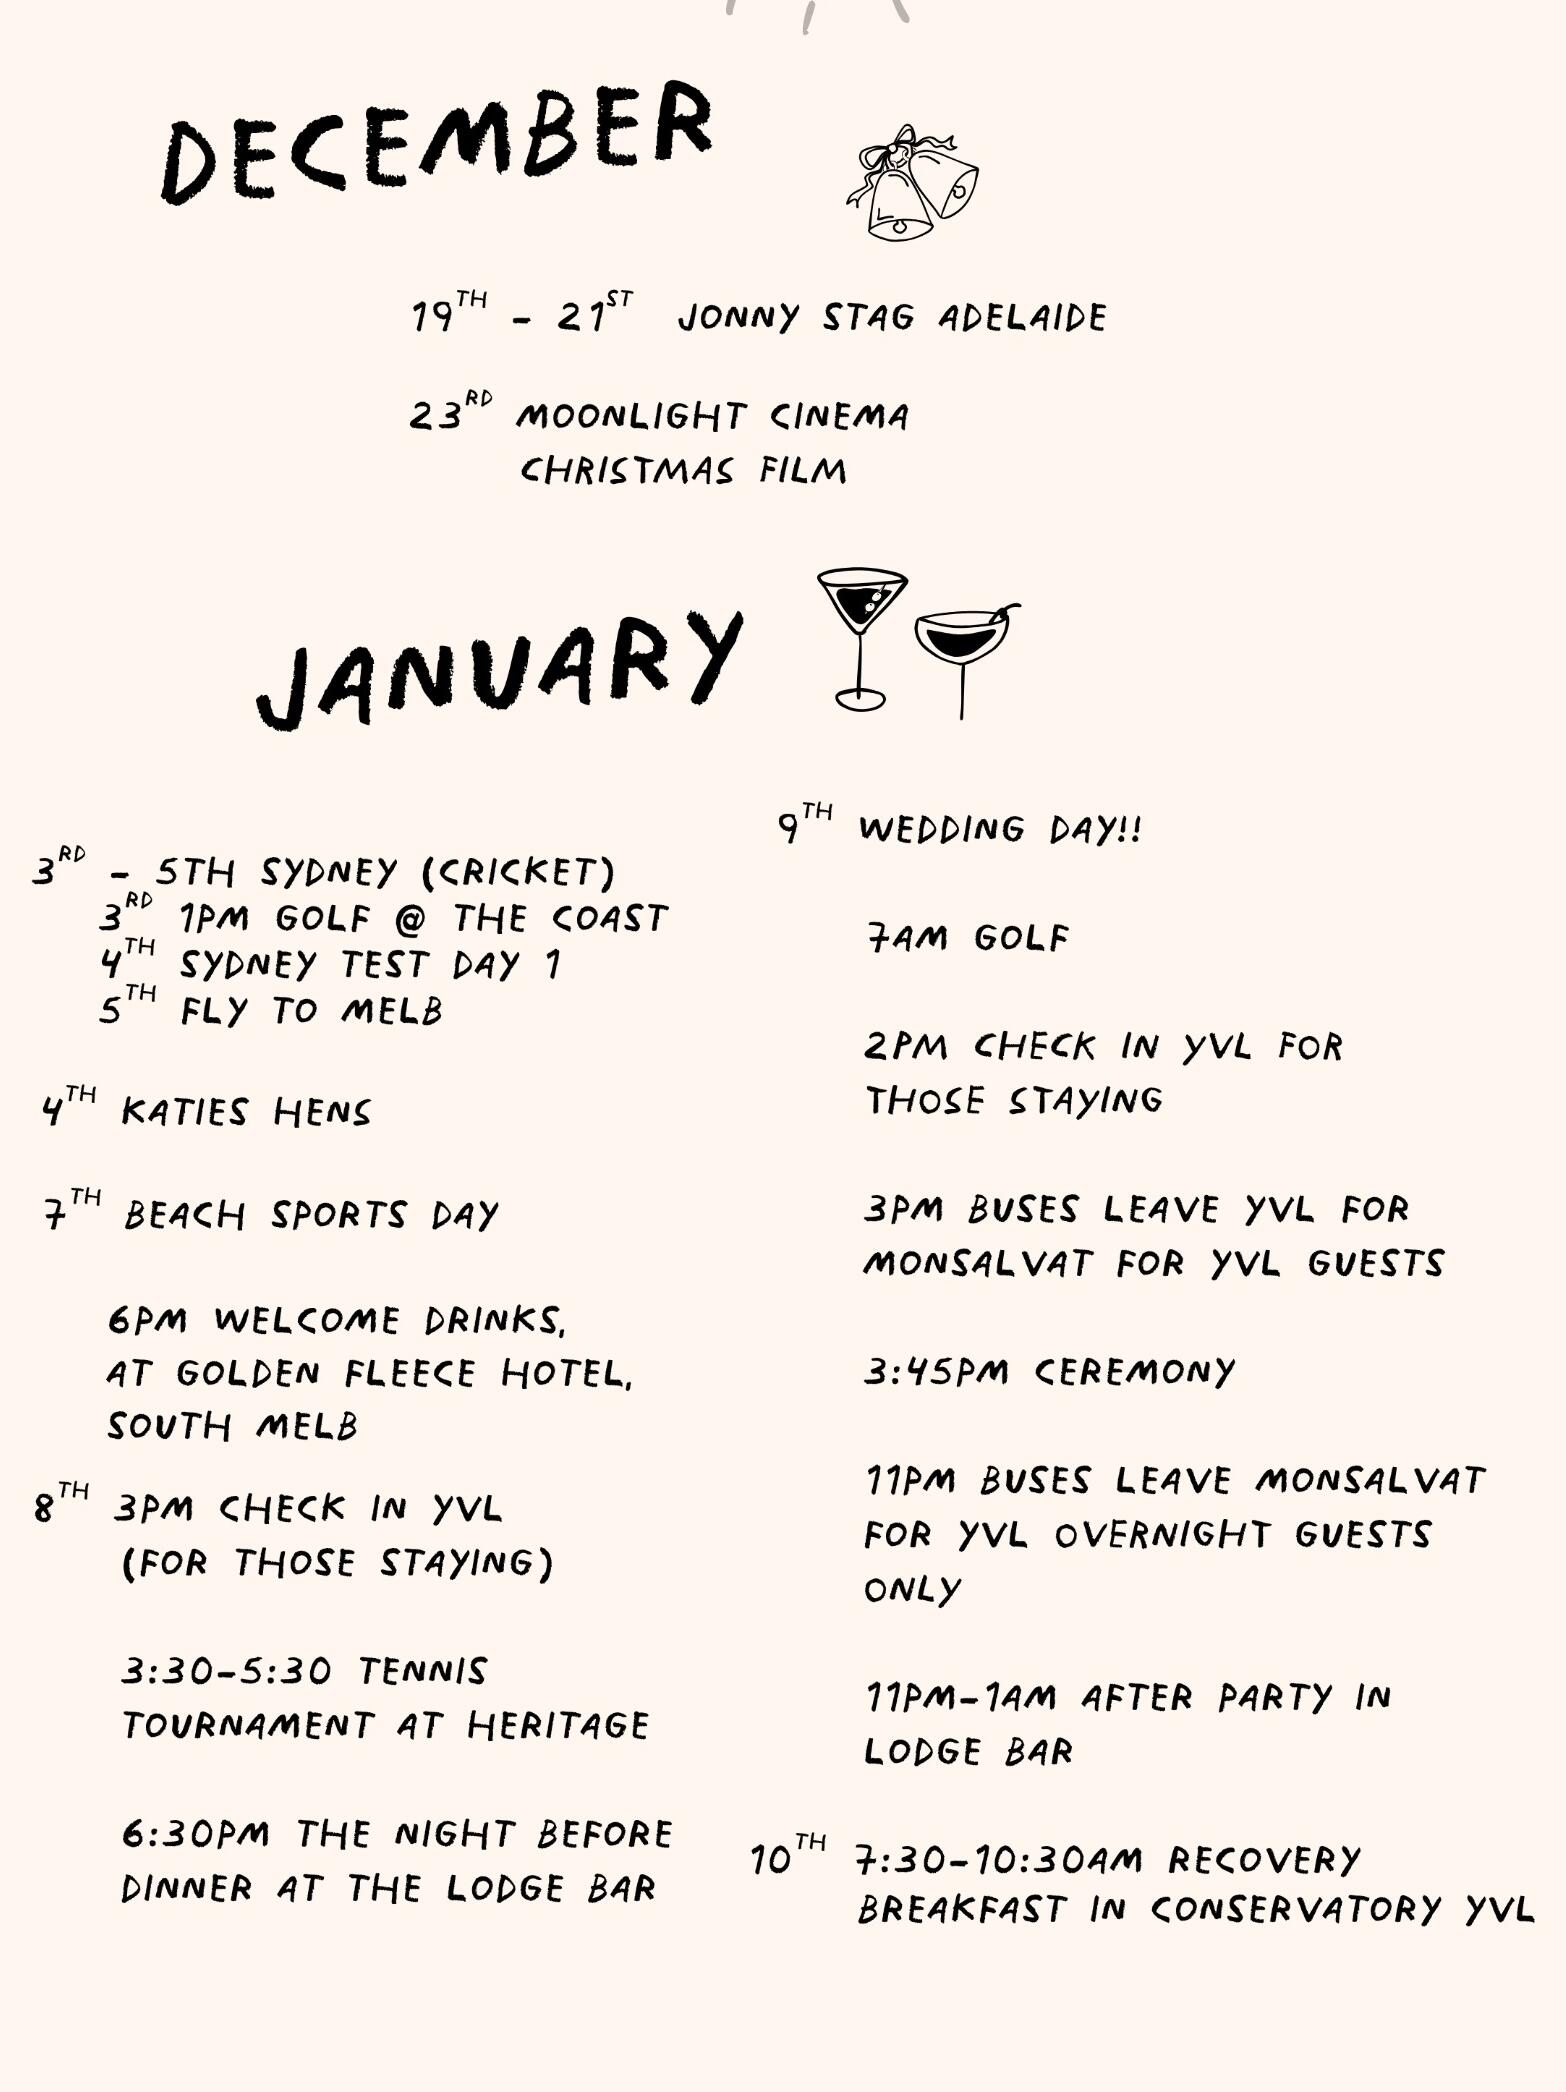 DECEMBER
19TH - 21ST JONNY STAG ADELAIDE
23RD MOONLIGHT CINEMA
CHRISTMAS FILM
JANUARY
3RD - 5TH SYDNEY (CRICKET)
3RD 1PM GOLF @ THE COAST
4TH SYDNEY TEST DAY 1
5TH FLY TO MELB
4TH KATIES HENS
7TH BEACH SPORTS DAY
6PM WELCOME DRINKS,
AT GOLDEN FLEECE HOTEL,
SOUTH MELB
8TH 3PM CHECK IN YVL
(FOR THOSE STAYING)
3:30-5:30 TENNIS
TOURNAMENT AT HERITAGE
6:30PM THE NIGHT BEFORE
DINNER AT THE LODGE BAR
9TH WEDDING DAY!!
7AM GOLF
2PM CHECK IN YVL FOR
THOSE STAYING
3PM BUSES LEAVE YVL FOR
MONSALVAT FOR YVL GUESTS
3:45PM CEREMONY
11PM BUSES LEAVE MONSALVAT
FOR YVL OVERNIGHT GUESTS
ONLY
11PM-1AM AFTER PARTY IN
LODGE BAR
10TH 7:30-10:30AM RECOVERY
BREAKFAST IN CONSERVATORY YVL